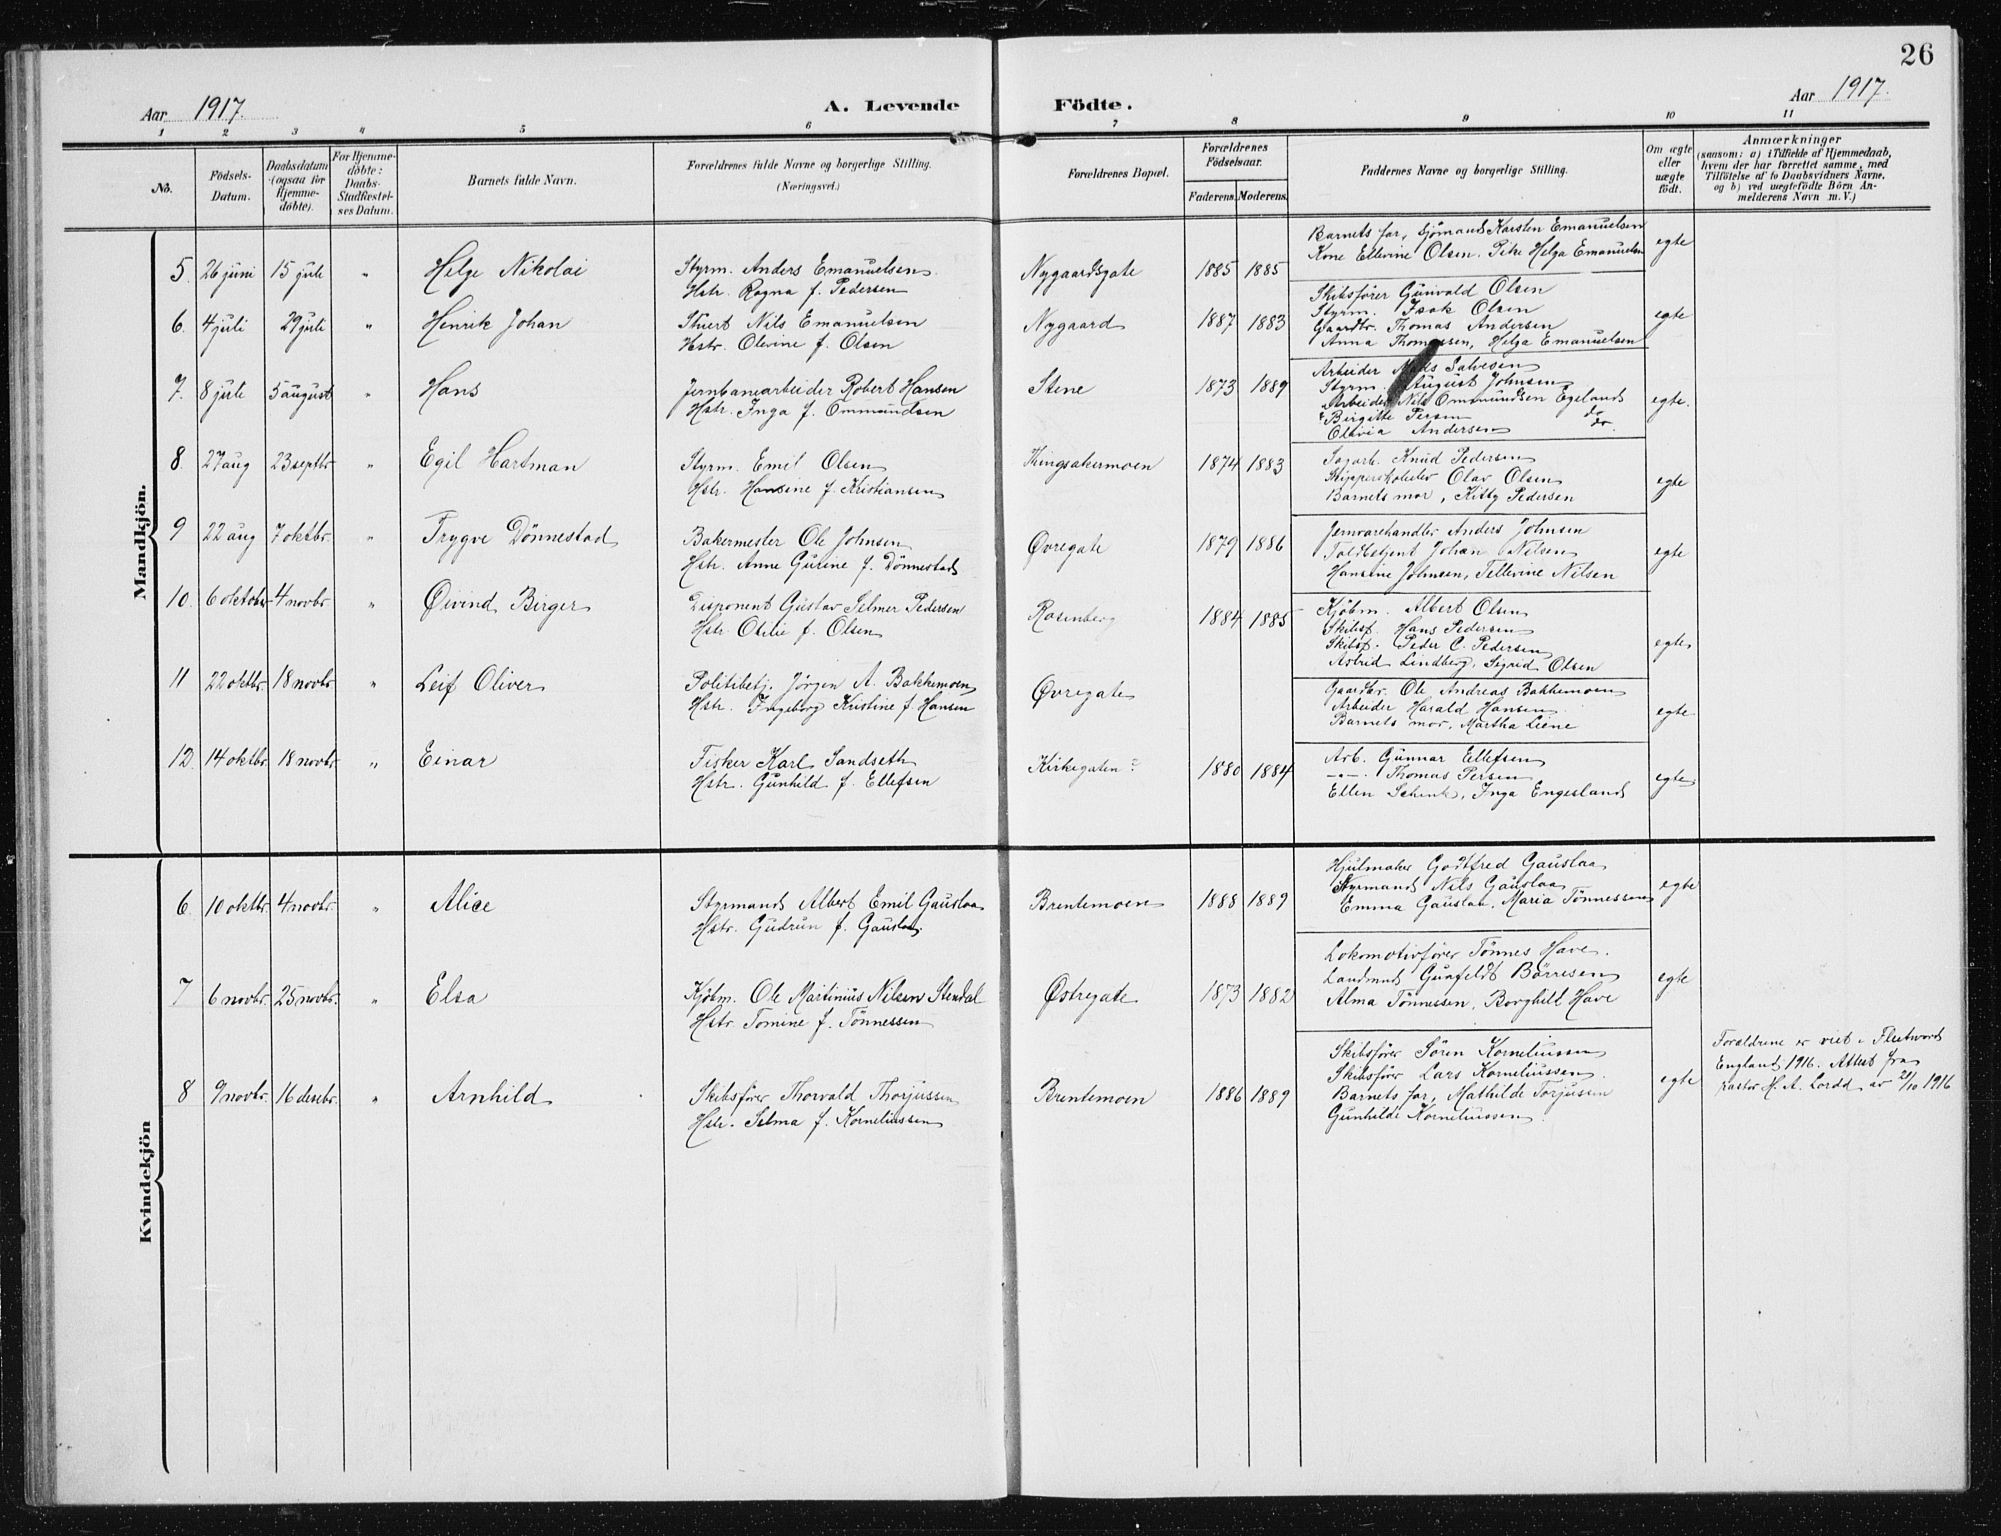 26
Aar 1917.
A. Levende Födte.
Aar 1917.
1 2 3 4 5 6 7 8 9 10 11
No.
Födsels-Datum.
Daabsdatum (ogsaa for Hjemme-döbte).
For Hjemme-döbte: Daabs-Stadfæstel-ses Datum.
Barnets fulde Navn.
Forældrenes fulde Navne og borgerlige Stilling. (Næringsvei.)
Forældrenes Bopæl.
Forældrenes Födselsaar.
Faderens. Moderens.
Faddernes Navne og borgerlige Stilling.
Om ægte eller uægte födt.
Anmærkninger
(saasom: a) i Tilfælde af Hjemmedaab,
hvem der har forrettet samme, med
Tilföielse af to Daabsvidners Navne,
og b) ved uægtefödte Börn An-
melderens Navn m. V.)
Mandkjön.
Barnets far, Sjömand Karsten Emanuelsen
Kone Ellevine Olsen. Pike Helga Emanuelsen
5. 26 juni 15 juli " Helge Nikolai Styrm. Anders Emanuelsen Nygaardsgate 1885 1885 egte
Hstr. Ragna f. Pedersen
Skibsfører Gunvald Olsen
Styrm. Isak Olsen
6. 4 juli 29 juli " Henrik Johan Stuert Nils Emanuelsen Nygaard 1887 1883 egte
Gaardbr. Thomas Andersen
Hstr. Olevine f. Olsen
Anna Thomassen, Helga Emanuelsen
Arbeider Salvesen
Styrm. August Johnsen
7. 8 juli 5 august " Hans Jernbanearbeider Robert Hansen Stene 1873 1889 egte.
Arbeider Nils Ommundsen Egeland
Hstr. Inga f. Ommundsen
Birgitte Persen do
Olavia Andersen do.
8. 27 aug 23 septbr " Egil Hartman Styrm. Emil Olsen Kingsakermoen 1874 1883 egte
Hstr. Hansine f. Kristiansen
Sagarb. Knud Pedersen
Skipperskoleelev Olav Olsen
Barnets mor, Kitty Pedersen
9 22 aug 7 oktbr. " Trygve Dönnestad Bakermester Ole Johnsen Øvregate 1879 1886 egte
Hstr. Anne Gurine f. Dönnestad
Jernvarehandler Anders Johnsen
Toldbetjent Johan Nilsen
Hansine Johnsen, Tellevine Nilsen
10. 6 oktober 4 novbr. " Øivind Birger Disponent Gustav Selmer Pedersen Rosenberg 1884 1885 egte
Hstr. Otilie f. Olsen
Kjöbm. Albert Olsen
Skibsf. Hans Pedersen
Skibsf. Peder C. Pedersen
Astrid Lindberg, Sigrid Olsen
11 22 oktbr. 18 novbr " Leif Oliver Politibetj. Jörgen A. Bakkemoen Øvregate egte
Hstr. Ingeborg Kristine f. Hansen
Gaardbr. Ole Andreas Bakkemoen
Arbeider Harald Hansen
Barnets mor, Martha Liene
12. 14 oktbr. 18 novbr. " Einar Fisker Karl Sandseth Kirkegaten 1880 1884 egte
Hstr. Gunhild f. Ellefsen
Arb. Gunnar Ellefsen
-"-. Thomas Persen
Ellen Schenk, Inga Engesland
Kvindekjön
6. 10 oktbr. 4 novbr. " Alice Styrmand Albert Emil Gauslaa Brentemoen 1888 1889 egte
Hstr. Gudrun f. Gauslaa.
Hjulmaker Godtfred Gauslaa
Styrmand Nils Gauslaa
Emma Gauslaa, Maria Tönnessen
7 6 novbr. 25 novbr. " Elsa Kjöbm. Ole Martinius Nilsen Stendal Østregate 1873 1882 egte
Hstr. Tomine f. Tönnessen
Lokomotivfører Tönnes Have.
Landmand Gunfeldt Börresen
Alma Tönnessen, Borghill Have
8 9 novbr. 16 desbr. " Arnhild Skibsfører Thorvald Thorjussen Brentemoen 1886 1889 egte
Hstr. Selma f. Korneliussen
Skibsfører Sören Korneliussen
Skibsfører Lars Korneliussen.
Barnets far, Mathilde Torjussen
Gunhilde Korneliussen.
Forældrene er viet i Fleetwood
England 1916. Attest fra
pastor H. A. Lordd av 21/10 1916